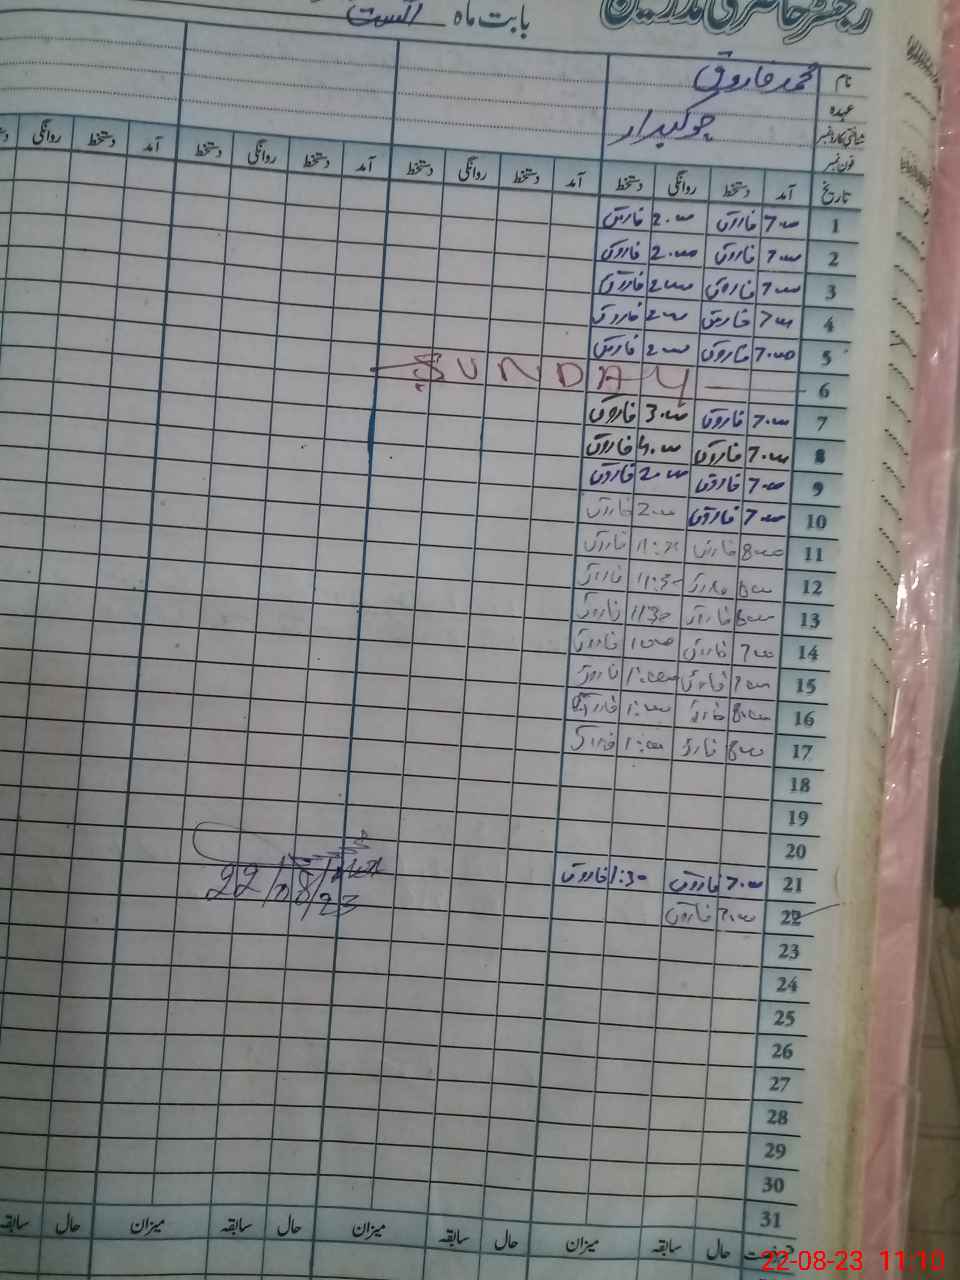 رجسٹر حاضری مدرسین
بابت ماہ اگست
نام محمد فاروق
عہدہ چوکیدار
شناختی کارڈ نمبر
فون نمبر
تاریخ آمد دستخط روانگی دستخط آمد دستخط روانگی دستخط آمد دستخط روانگی دستخط آمد دستخط روانگی
1 7.00 فاروق 2.00 فاروق
2 7.00 فاروق 2.00 فاروق
3 7.00 فاروق 2.00 فاروق
4 7.00 فاروق 2.00 فاروق
5 7.00 فاروق 2.00 فاروق
6 SUNDAY
7 7.00 فاروق 3.00 فاروق
8 7.00 فاروق 4.00 فاروق
9 7.00 فاروق 2.00 فاروق
10 7.00 فاروق 2.00 فاروق
11 8.00 فاروق 11:30 فاروق
12 8.00 فاروق 11:30 فاروق
13 8.00 فاروق 11:30 فاروق
14 7.00 فاروق 1:00 فاروق
15 7.00 فاروق 1:00 فاروق
16 8.00 فاروق 1:00 فاروق
17 8.00 فاروق 1:00 فاروق
18
19
20
21 7.00 فاروق 1:30 فاروق
22 7.00 فاروق
22/08/23
23
24
25
26
27
28
29
30
31
حال سابقہ میزان حال سابقہ میزان حال سابقہ میزان حال سابقہ
22-08-23 11:10